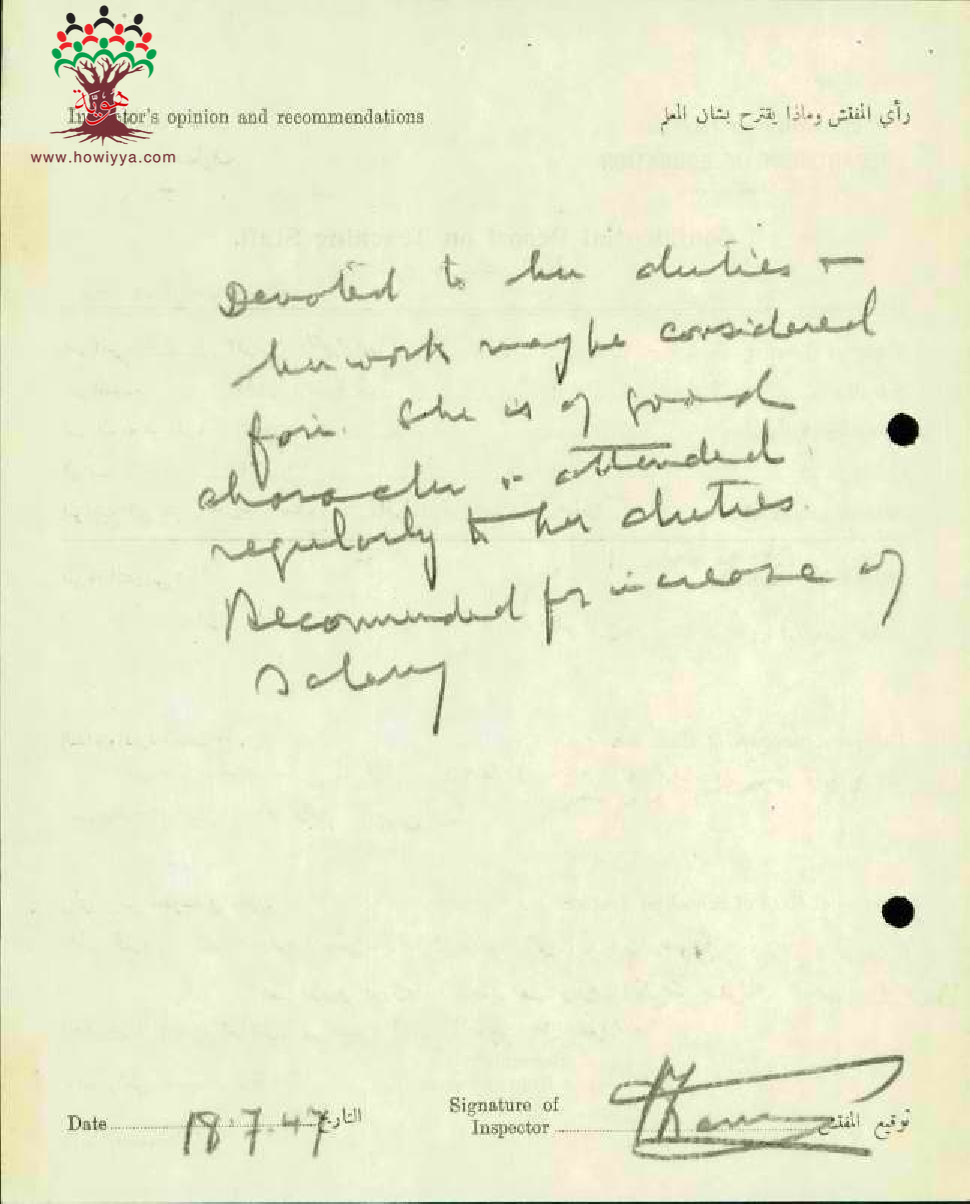 هوية
www.howiyya.com
Inspector's opinion and recommendations
رأي المفتش وماذا يقترح بشأن المعلم
Confidential Report on Teaching Staff.
Devoted to her duties &
her work may be considered
fair. She is of good
character & attended
regularly to her duties.
Recommended for increase of
salary
Date 18.7.47 التاريخ
Signature of
Inspector
توقيع المفتش